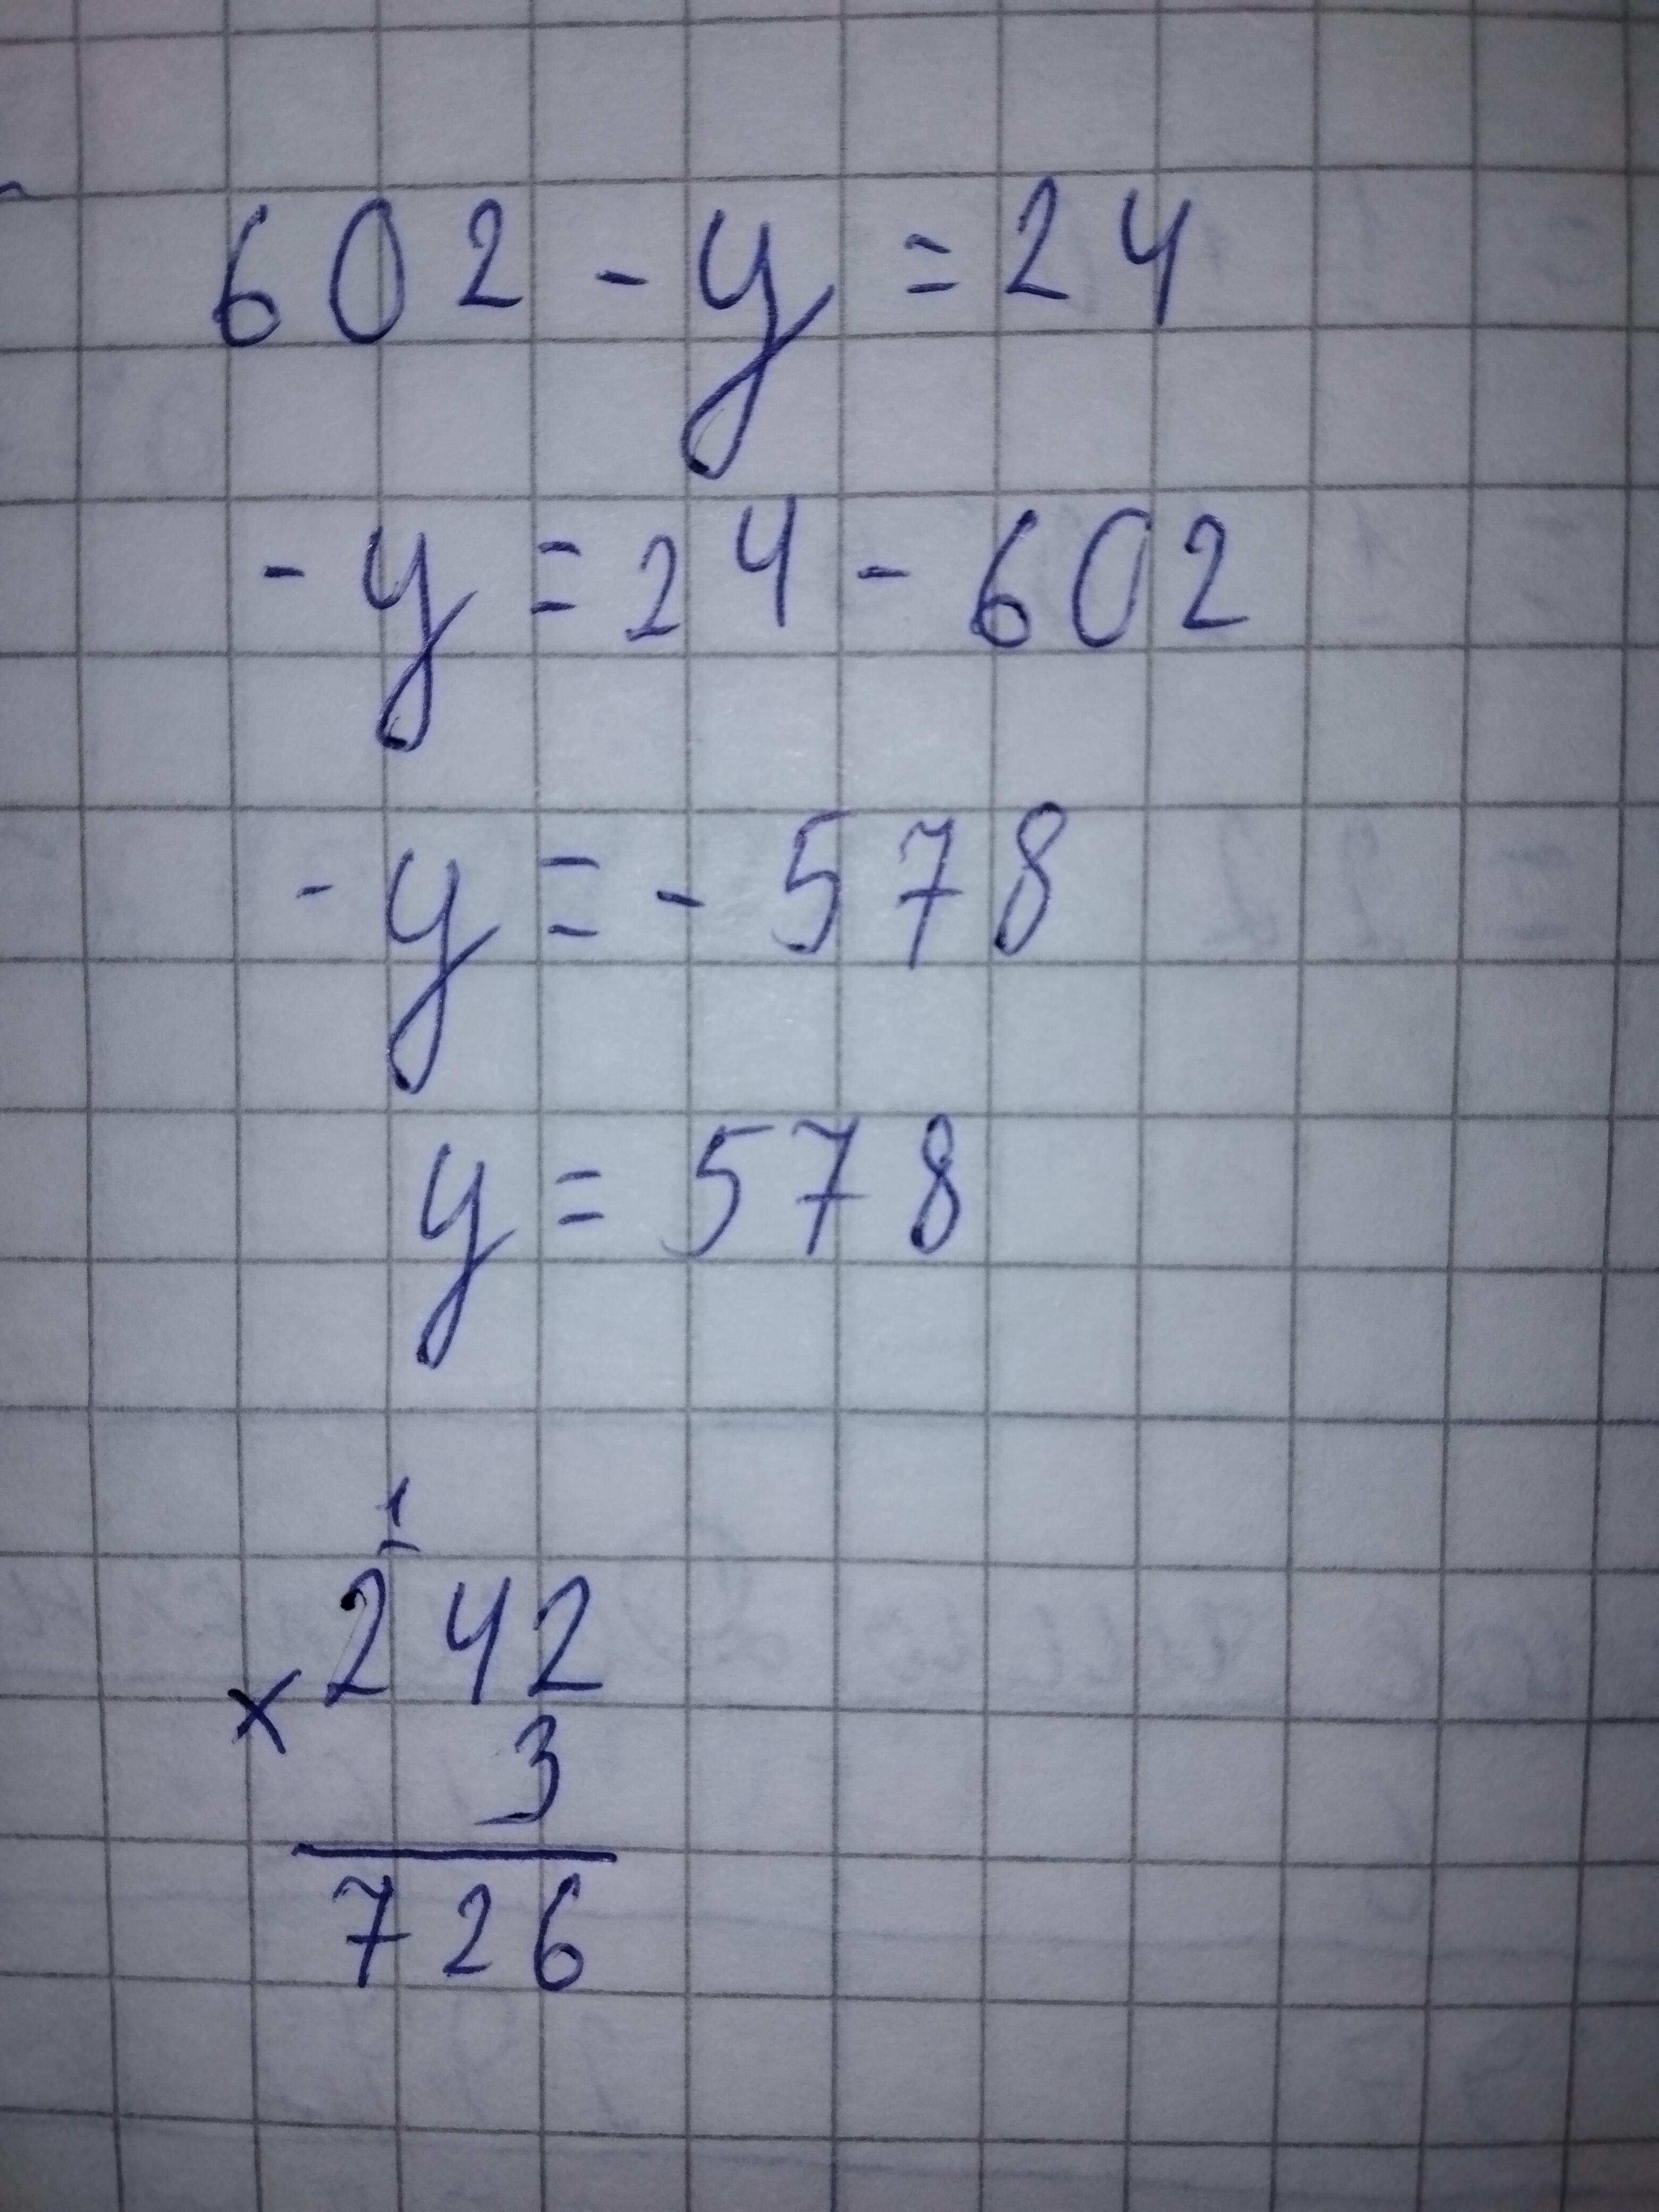 602 - y = 24
- y = 24 - 602
- y = - 578
y = 578
1
242
× 3
726